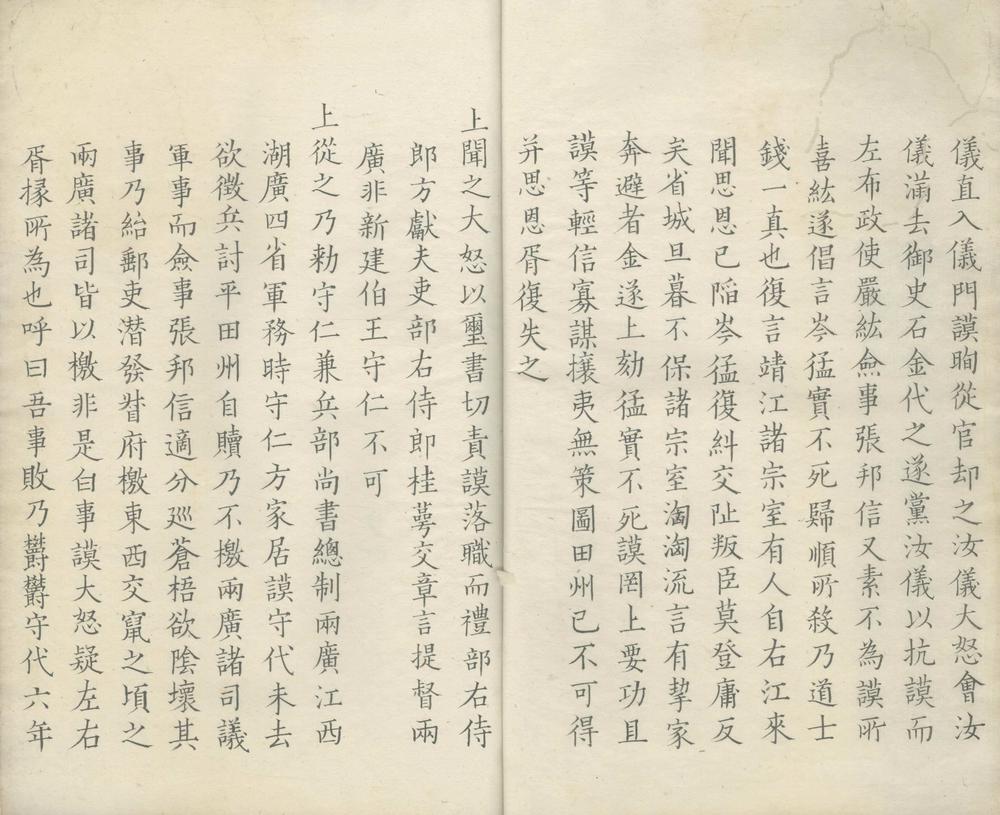 儀直入儀門謨眴從官却之汝儀大怒會汝
儀滿去御史石金代之遂黨汝儀以抗謨而
左布政使嚴紘僉事張邦信又素不為謨所
喜紘遂倡言岑猛實不死歸順所殺乃道士
錢一真也復言靖江諸宗室有人自右江來
聞思恩已陷岑猛復糾交阯叛臣莫登庸反
矣省城旦暮不保諸宗室淘淘流言有挈家
奔避者金遂上劾猛實不死謨罔上要功且
謨等輕信寡謀攘夷無策圖田州已不可得
并思恩胥復失之
上聞之大怒以璽書切責謨落職而禮部右侍
郎方獻夫吏部右侍郎桂萼交章言提督兩
廣非新建伯王守仁不可
上從之乃勑守仁兼兵部尚書總制兩廣江西
湖廣四省軍務時守仁方家居謨守代未去
欲徵兵討平田州自贖乃不檄兩廣諸司議
軍事而僉事張邦信適分巡蒼梧欲陰壞其
事乃紿郵吏潛發督府檄東西交竄之頃之
兩廣諸司皆以檄非是白事謨大怒疑左右
胥掾所為也呼曰吾事敗乃欝欝守代六年